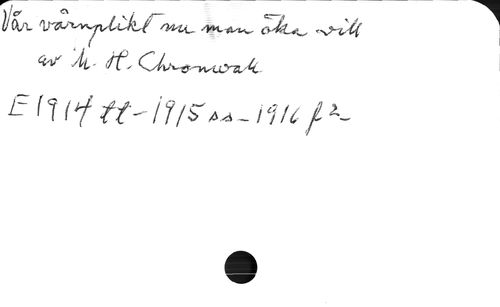 Vår värnplikt nu man öka vill
av M. H. Chronwall
E 1914 tt - 1915 ss - 1916 f 2 -